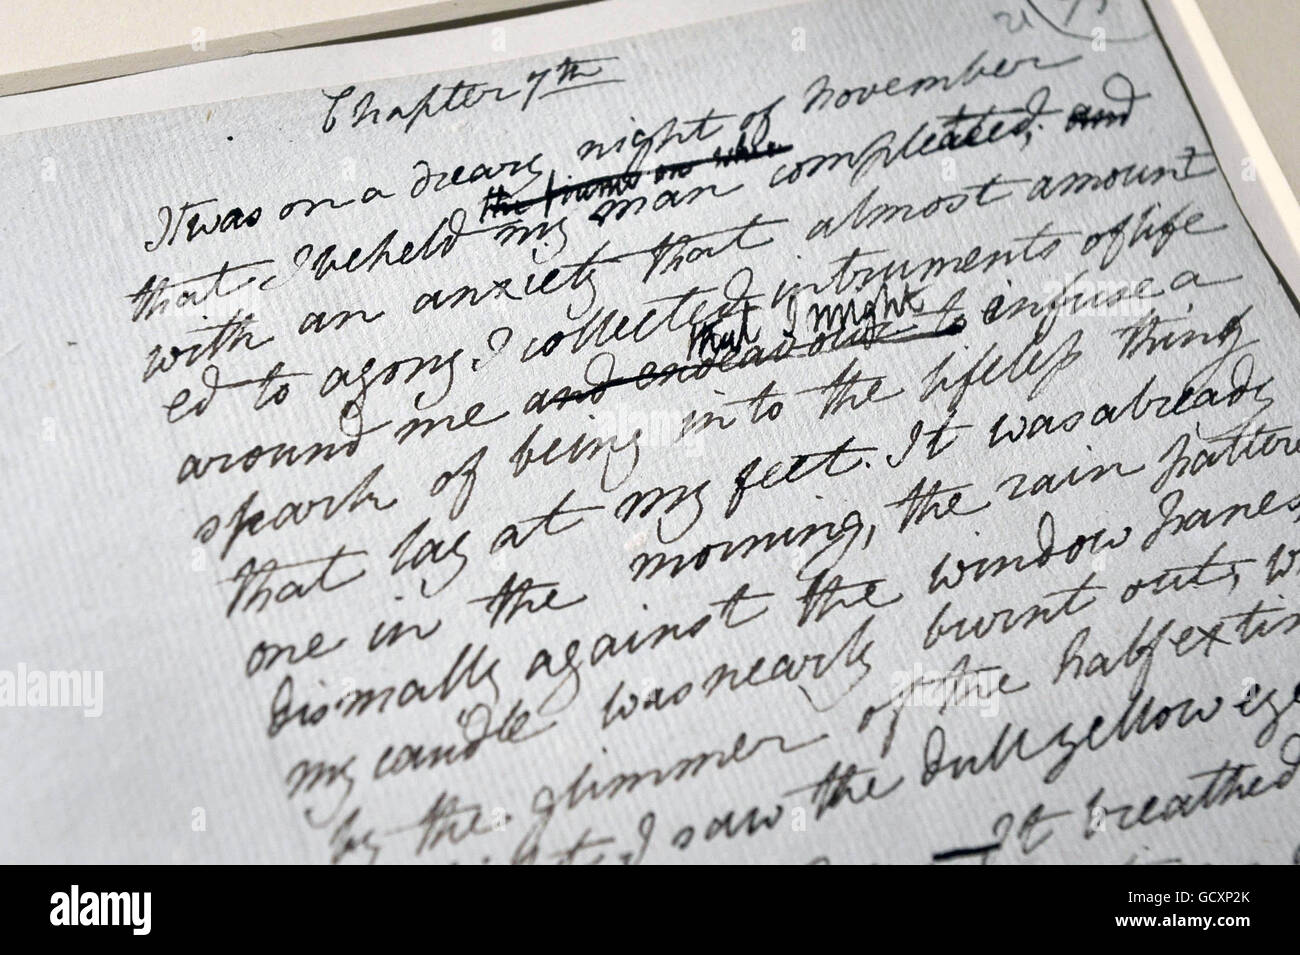 Chapter 7th
It was on a dreary night of November
that I beheld the frame on whic my man compleated, and
with an anxiety that almost amount
ed to agony, I collected instruments of life
around me and endeavour to that I might infuse a
spark of being into the lifeless thing
that lay at my feet. It was already
one in the morning, the rain pattere
dismally against the window panes,
my candle was nearly burnt out, w
by the glimmer of the half extin
I saw the dull yellow eye
It breathed
alamy
Image ID: GCXP2K
www.alamy.com